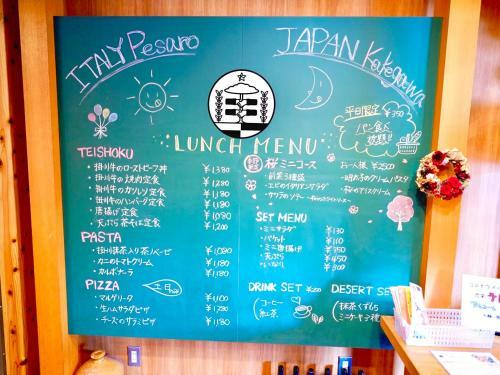 ITALY Pesaro
JAPAN Kakegawa
平日限定 ¥350
パン食べ
放題!!
LUNCH MENU
TEISHOKU
・掛川牛のローストビーフ丼 ¥1,380
・掛川牛の焼肉定食 ¥1,280
・掛川牛のカツレツ定食 ¥1,180
・掛川牛のハンバーグ定食 ¥1,180
・唐揚げ定食 ¥1,080
・天ぷら茶そば定食 ¥1,200
PASTA
・掛川抹茶入り茶ノベーゼ ¥1,080
・カニのトマトクリーム ¥1,180
・カルボナーラ ¥1,180
PIZZA
土日のみ
・マルゲリータ ¥1,100
・生ハムサラダピザ ¥1,280
・チーズのサラミピザ ¥1,180
桜ミニコース
お一人様 ¥2500
・前菜3種盛
・エビのイタリアンサラダ
・明太子のクリームパスタ
・桜のアイスクリーム
SET MENU
・ミニサラダ ¥130
・バケット ¥100
・ミニ唐揚げ ¥350
・天ぷら ¥450
・いなり ¥300
DRINK SET ¥200
コーヒー
紅茶
DESERT SET
抹茶くずもち
ミニケーキ